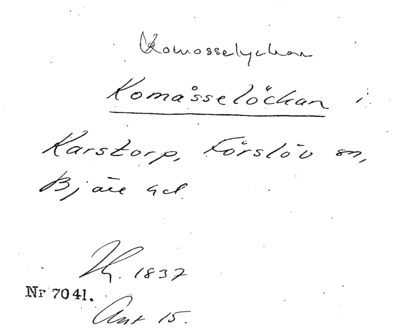 Komosselyckan
Komåsselöckan i
Karstorp, Förslöv sn,
Bjäre hd.
Hy. 1837
Nr 7041.
Ant 15.